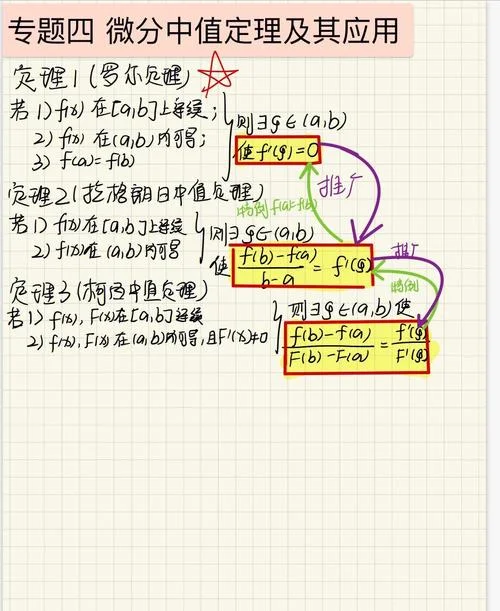 专题四 微分中值定理及其应用
定理1(罗尔定理)
若 1) f(x) 在[a,b]上连续;
2) f(x) 在(a,b)内可导;
3) f(a)=f(b)
则∃ξ∈(a,b)
使f'(ξ)=0
推广
特例 f(a)=f(b)
定理2(拉格朗日中值定理)
若 1) f(x)在[a,b]上连续
2) f(x)在(a,b)内可导
则∃ξ∈(a,b)
使 f(b)-f(a)/b-a = f'(ξ)
推广
特例
定理3(柯西中值定理)
若1) f(x), F(x)在[a,b]连续
2) f(x), F(x)在(a,b)内可导,且F'(x)≠0
则∃ξ∈(a,b)使
f(b)-f(a)/F(b)-F(a) = f'(ξ)/F'(ξ)